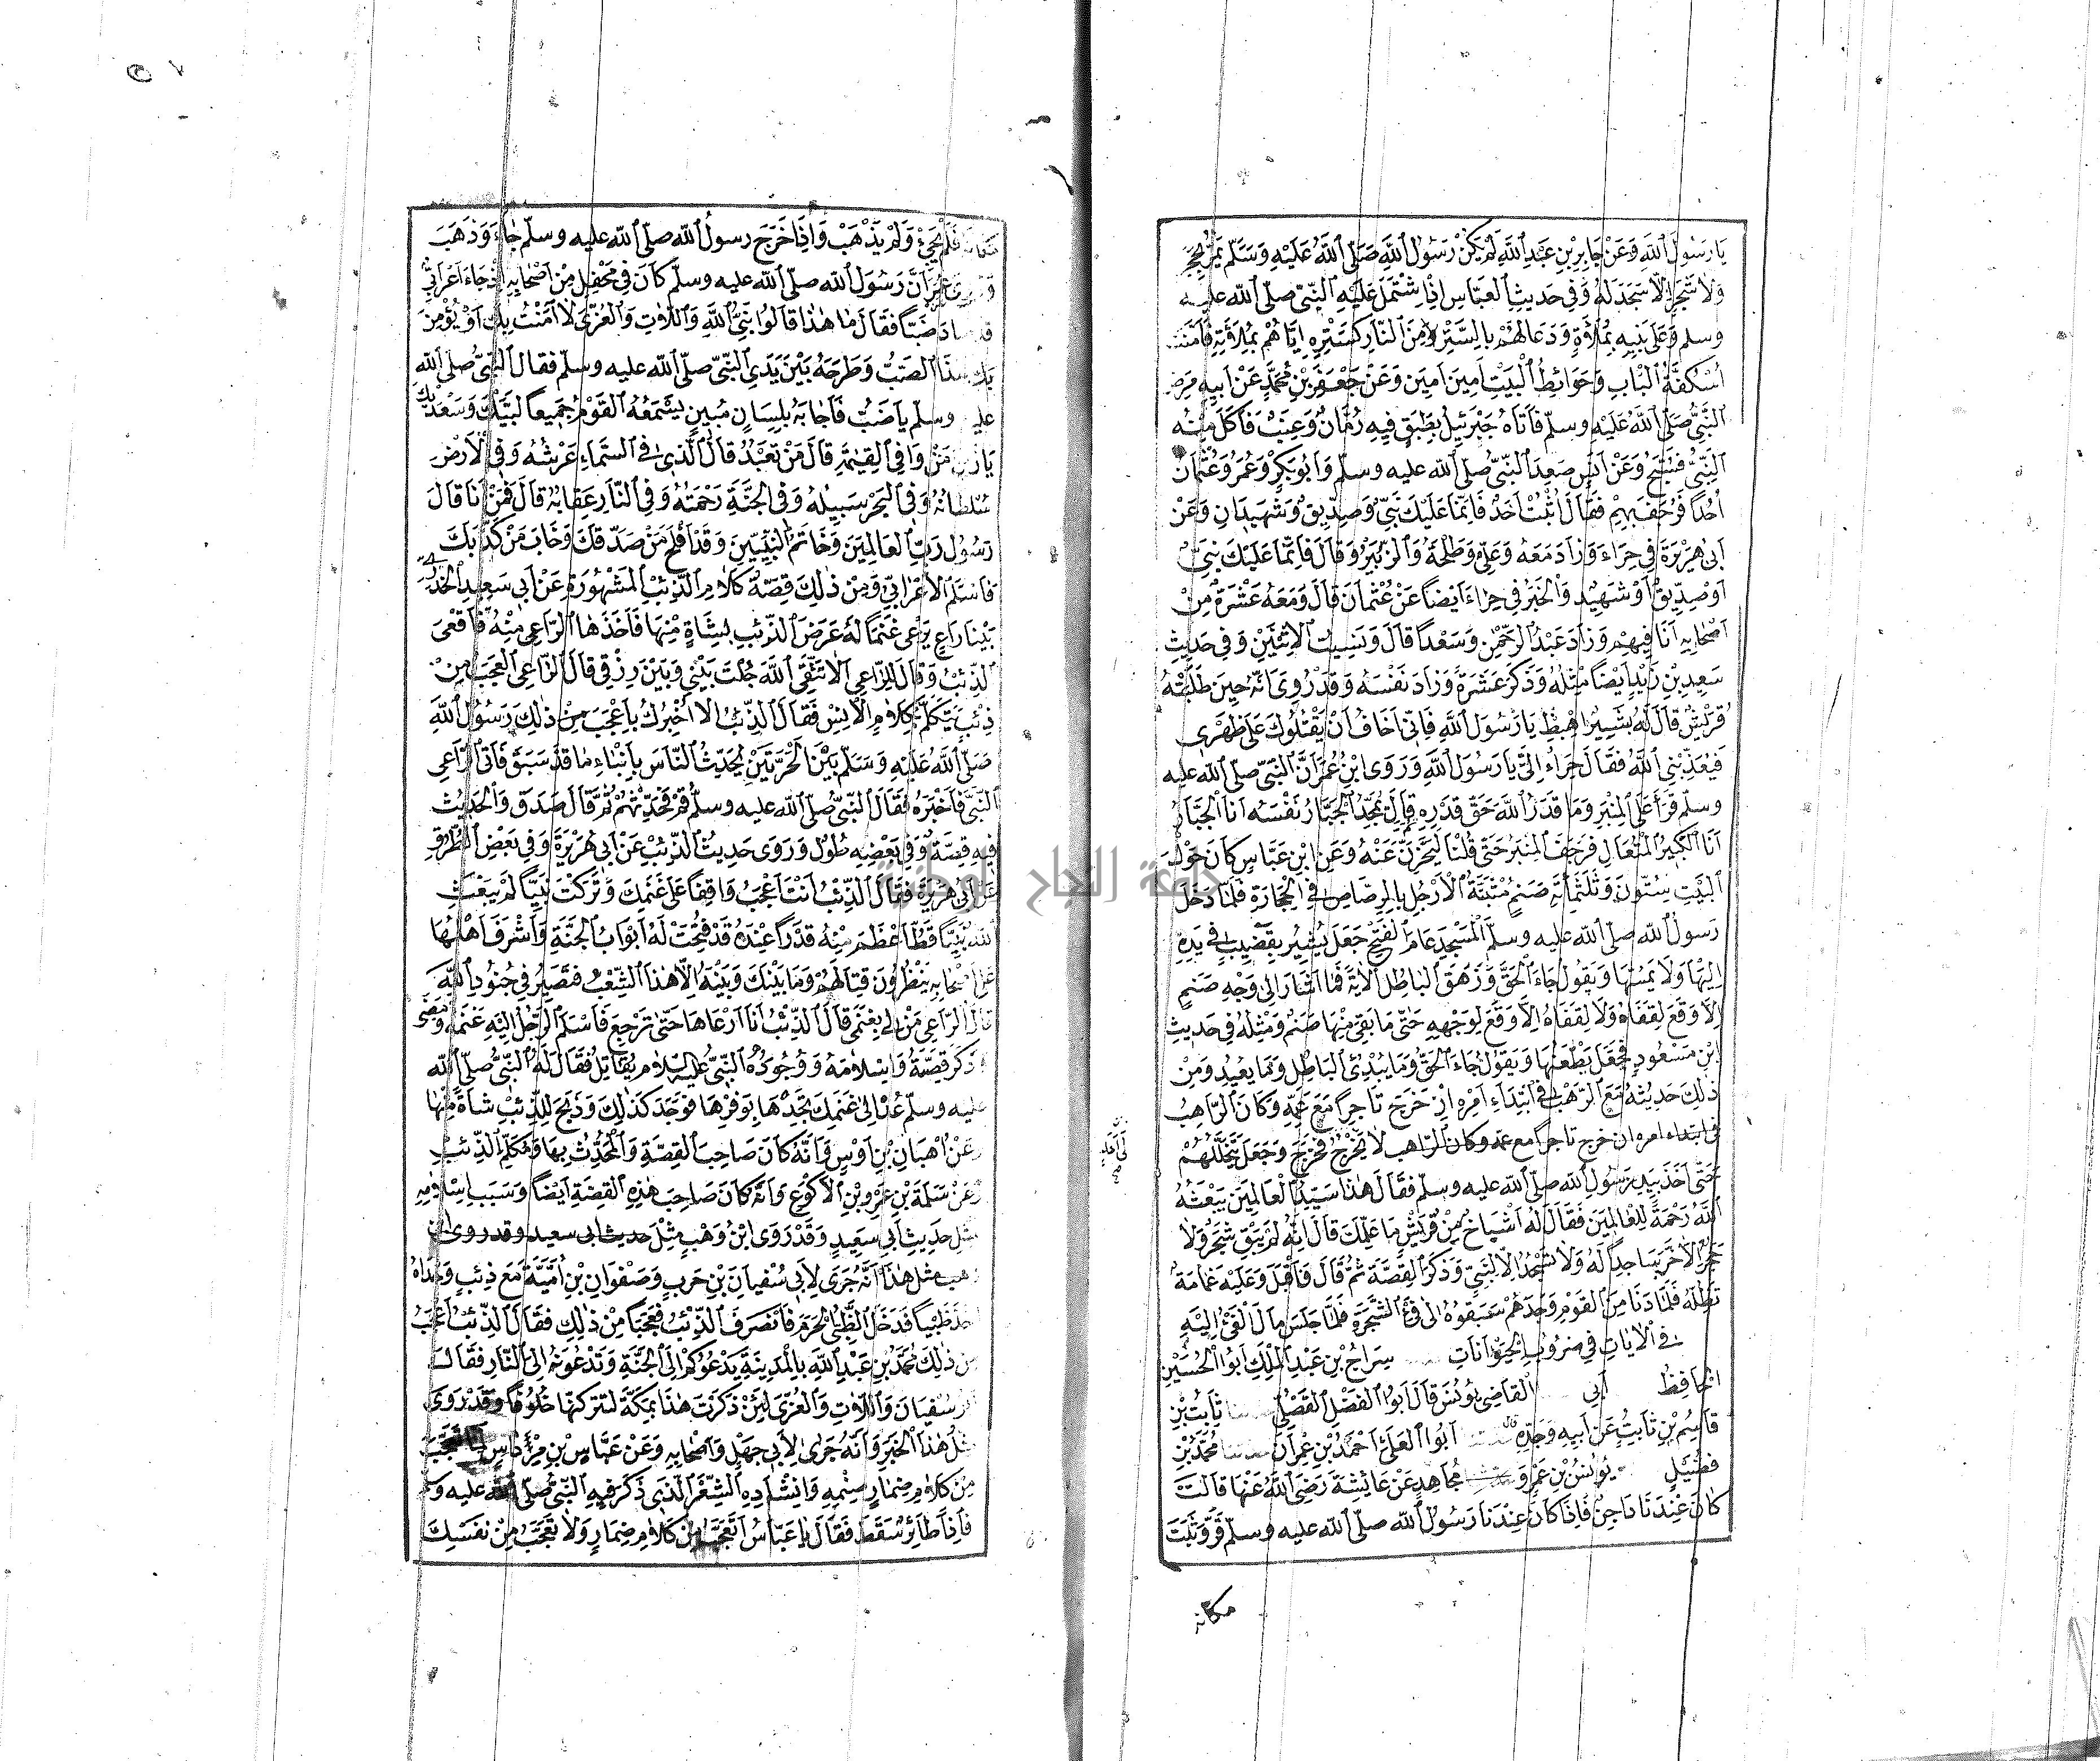 يَا رَسُولَ اللَّهِ وَعَنْ جَابِرِ بْنِ عَبْدِ اللَّهِ لَمْ يَكُنْ رَسُولُ اللَّهِ صَلَّى اللَّهُ عَلَيْهِ وَسَلَّمَ يَمُرُّ بِحَجَرٍ
وَلَا شَجَرٍ إِلَّا سَجَدَ لَهُ وَفِي حَدِيثِ الْعَبَّاسِ إِذِ اشْتَمَلَ عَلَيْهِ النَّبِيُّ صلّى الله عليه
وسلم وَعَلَى بَنِيهِ بِمُلَاءَةٍ وَدَعَا لَهُمْ بِالسَّتْرِ مِنَ النَّارِ كَسَتْرِهِ إِيَّاهُمْ بِمُلَاءَتِهِ فَأَمَّنَتْ
أُسْكُفَّةُ الْبَابِ وَحَوَائِطُ الْبَيْتِ آمِينَ آمِينَ وَعَنْ جَعْفَرِ بْنِ مُحَمَّدٍ عَنْ أَبِيهِ مَرِضَ
النَّبِيُّ صَلَّى اللَّهُ عَلَيْهِ وسلّم فَأَتَاهُ جَبْرَئِيلُ بِطَبَقٍ فِيهِ رُمَّانٌ وَعِنَبٌ فَأَكَلَ مِنْهُ
النَّبِيُّ فَسَبَّحَ وَعَنْ أَنَسٍ صَعِدَ النَّبِيُّ صلّى الله عليه وسلّم وَأَبُو بَكْرٍ وَعُمَرُ وَعُثْمَانُ
أُحُدًا فَرَجَفَ بِهِمْ فَقَالَ اثْبُتْ أُحُدُ فَإِنَّمَا عَلَيْكَ نَبِيٌّ وَصِدِّيقٌ وَشَهِيدَانِ وَعَنْ
أَبِي هُرَيْرَةَ فِي حِرَاءَ وَزَادَ مَعَهُ وَعَلِيٌّ وَطَلْحَةُ وَالزُّبَيْرُ وَقَالَ فَإِنَّمَا عَلَيْكَ نَبِيٌّ
أَوْ صِدِّيقٌ أَوْ شَهِيدٌ وَالْخَبَرُ فِي حِرَاءَ أَيْضًا عَنْ عُثْمَانَ قَالَ وَمَعَهُ عَشَرَةٌ مِنْ
أَصْحَابِهِ أَنَا فِيهِمْ وَزَادَ عَبْدَ الرَّحْمٰنِ وَسَعْدًا قَالَ وَنَسِيتُ الْاِثْنَيْنِ وَفِي حَدِيثِ
سَعِيدِ بْنِ زَيْدٍ أَيْضًا مِثْلُهُ وَذَكَرَ عَشَرَةً وَزَادَ نَفْسَهُ وَقَدْ رُوِيَ أَنَّهُ حِينَ طَلَبَتْهُ
قُرَيْشٌ قَالَ لَهُ ثَبِيرٌ اهْبِطْ يَا رَسُولَ اللَّهِ فَإِنِّي أَخَافُ أَنْ يَقْتُلُوكَ عَلَى ظَهْرِي
فَيُعَذِّبُنِي اللَّهُ فَقَالَ حِرَاءُ إِلَيَّ يَا رَسُولَ اللَّهِ وَرَوَى ابْنُ عُمَرَ أَنَّ النَّبِيَّ صلّى الله عليه
وسلّم قَرَأَ عَلَى الْمِنْبَرِ وَمَا قَدَرُوا اللَّهَ حَقَّ قَدْرِهِ قَالَ يُمَجِّدُ الْجَبَّارُ نَفْسَهُ أَنَا الْجَبَّارُ
أَنَا الْكَبِيرُ الْمُتَعَالِ فَرَجَفَ الْمِنْبَرُ حَتَّى قُلْنَا لَيَخِرَّنَّ عَنْهُ وَعَنِ ابْنِ عَبَّاسٍ كَانَ حَوْلَ
الْبَيْتِ سِتُّونَ وَثَلٰثُمِائَةِ صَنَمٍ مُثْبَتَةُ الْأَرْجُلِ بِالرَّصَاصِ فِي الْحِجَارَةِ فَلَمَّا دَخَلَ
رَسُولُ الله صلّى الله عليه وسلّم الْمَسْجِدَ عَامَ الْفَتْحِ جَعَلَ يُشِيرُ بِقَضِيبٍ فِي يَدِهِ
إِلَيْهَا وَلَا يَمَسُّهَا وَيَقُولُ جَاءَ الْحَقُّ وَزَهَقَ الْبَاطِلُ الْآيَةَ فَمَا أَشَارَ إِلَى وَجْهِ صَنَمٍ
إِلَّا وَقَعَ لِقَفَاهُ وَلَا لِقَفَاهُ إِلَّا وَقَعَ لِوَجْهِهِ حَتَّى مَا بَقِيَ مِنْهَا صَنَمٌ وَمِثْلُهُ فِي حَدِيثِ
ابْنِ مَسْعُودٍ فَجَعَلَ يَطْعَنُهَا وَيَقُولُ جَاءَ الْحَقُّ وَمَا يُبْدِئُ الْبَاطِلُ وَمَا يُعِيدُ وَمِنْ
ذٰلِكَ حَدِيثُهُ مَعَ الرَّاهِبِ فِي ابْتِدَاءِ أَمْرِهِ إِذْ خَرَجَ تَاجِرًا مَعَ عَمِّهِ وَكَانَ الرَّاهِبُ
فى ابتداء امره ان خرج تاجرا مع عمه وكان الرّاهب لَا يَخْرُجُ فَخَرَجَ وَجَعَلَ يَتَخَلَّلُهُمْ
حَتَّى أَخَذَ بِيَدِ رَسُولِ الله صلّى الله عليه وسلّم فَقَالَ هٰذَا سَيِّدُ الْعَالَمِينَ يَبْعَثُهُ
اللَّهُ رَحْمَةً لِلْعَالَمِينَ فَقَالَ لَهُ أَشْيَاخٌ مِنْ قُرَيْشٍ مَا عِلْمُكَ قَالَ إِنَّهُ لَمْ يَبْقَ شَجَرٌ وَلَا
حَجَرٌ إِلَّا خَرَّ سَاجِدًا لَهُ وَلَا تَسْجُدُ إِلَّا لِنَبِيٍّ وَذَكَرَ الْقِصَّةَ ثُمَّ قَالَ وَأَقْبَلَ وَعَلَيْهِ غَمَامَةٌ
تُظِلُّهُ فَلَمَّا دَنَا مِنَ الْقَوْمِ وَجَدَهُمْ سَبَقُوهُ إِلَى فَيْءِ الشَّجَرَةِ فَلَمَّا جَلَسَ مَالَ الْفَيْءُ إِلَيْهِ
فِي الْآيَاتِ فِي ضُرُوبِ الْحَيْوَانَاتِ سِرَاجُ بْنِ عَبْدِ الْمَلِكِ أَبُو الْحُسَيْنِ
الْحَافِظُ أَبِي الْقَاضِي يُونُسَ قَالَ أَبُو الْفَضْلِ الْفَضْلِيُّ ثَابِتُ بْنِ
قَاسِمِ بْنِ ثَابِتٍ عَنْ أَبِيهِ وَجَدِّهِ قال أَبُو الْعَلَى أَحْمَدُ بْنِ عِمْرَانَ مُحَمَّدُ بْنِ
فُضَيْلٍ يُونُسُ بْنِ عَمْرٍو مُجَاهِدٍ عَنْ عَائِشَةَ رَضِيَ اللَّهُ عَنْهَا قَالَتْ
كَانَ عِنْدَنَا دَاجِنٌ فَإِذَا كَانَ عِنْدَنَا رَسُولُ الله صلّى الله عليه وسلّم قَرَّ وَثَبَتَ
مكانه
مَكَانَهُ فَلَمْ يَجِئْ وَلَمْ يَذْهَبْ وَإِذَا خَرَجَ رسولُ الله صلّى الله عليه وسلّم جَاءَ وَذَهَبَ
عُمَرَ أَنَّ رَسُولَ الله صلّى الله عليه وسلّم كَانَ فِي مَحْفِلٍ مِنْ أَصْحَابِهِ إِذْ جَاءَ أَعْرَابِيٌّ
ضَبًّا فَقَالَ مَا هٰذَا قَالُوا نَبِيُّ اللَّهِ وَاللَّاتِ وَالْعُزَّى لَا آمَنْتُ بِكَ أَوْ يُؤْمِنَ
بِكَ هٰذَا الضَّبُّ وَطَرَحَهُ بَيْنَ يَدَيِ النَّبِيِّ صلّى الله عليه وسلّم فقال النَّبِيُّ صلى الله
عليه وسلّم يَا ضَبُّ فَأَجَابَهُ بِلِسَانٍ مُبِينٍ يَسْمَعُهُ الْقَوْمُ جَمِيعًا لَبَّيْكَ وَسَعْدَيْكَ
يَا زَيْنَ مَنْ وَافَى الْقِيٰمَةَ قَالَ مَنْ تَعْبُدُ قَالَ الَّذِي فِي السَّمَاءِ عَرْشُهُ وَفِي الْأَرْضِ
سُلْطَانُهُ وَفِي الْبَحْرِ سَبِيلُهُ وَفِي الْجَنَّةِ رَحْمَتُهُ وَفِي النَّارِ عِقَابُهُ قَالَ فَمَنْ أَنَا قَالَ
رَسُولُ رَبِّ الْعَالَمِينَ وَخَاتَمُ النَّبِيِّينَ وَقَدْ أَفْلَحَ مَنْ صَدَّقَكَ وَخَابَ مَنْ كَذَّبَكَ
فَأَسْلَمَ الْأَعْرَابِيُّ وَمِنْ ذٰلِكَ قِصَّةُ كَلَامِ الذِّئْبِ الْمَشْهُورَةُ عَنْ أَبِي سَعِيدٍ الْخُدْرِيِّ
بَيْنَا رَاعٍ يَرْعَى غَنَمًا لَهُ عَرَضَ الذِّئْبُ لِشَاةٍ مِنْهَا فَأَخَذَهَا الرَّاعِي مِنْهُ فَأَقْعَى
الذِّئْبُ وَقَالَ لِلرَّاعِي أَلَا تَتَّقِي اللَّهَ حُلْتَ بَيْنِي وَبَيْنَ رِزْقِي قَالَ الرَّاعِي الْعَجَبُ مِنْ
ذِئْبٍ يَتَكَلَّمُ بِكَلَامِ الْإِنْسِ فَقَالَ الذِّئْبُ أَلَا أُخْبِرُكَ بِأَعْجَبَ مِنْ ذٰلِكَ رَسُولُ اللَّهِ
صَلَّى اللَّهُ عَلَيْهِ وَسَلَّمَ بَيْنَ الْحَرَّتَيْنِ يُحَدِّثُ النَّاسَ بِأَنْبَاءِ مَا قَدْ سَبَقَ فَأَتَى الرَّاعِي
النَّبِيَّ فَأَخْبَرَهُ فَقَالَ النَّبِيُّ صلّى الله عليه وسلّم قُمْ فَحَدِّثْهُمْ ثُمَّ قَالَ صَدَقَ وَالْحَدِيثُ
فِيهِ قِصَّةٌ وَفِي بَعْضِهِ طُولٌ وَرَوَى حَدِيثَ الذِّئْبِ عَنْ أَبِي هُرَيْرَةَ وَفِي بَعْضِ الطُّرُقِ
عَنْ أَبِي هُرَيْرَةَ فَقَالَ الذِّئْبُ أَنْتَ أَعْجَبُ وَاقِفًا عَلَى غَنَمِكَ وَتَرَكْتَ نَبِيًّا لَمْ يَبْعَثِ
اللَّهُ نَبِيًّا قَطُّ أَعْظَمَ مِنْهُ قَدْرًا عِنْدَهُ قَدْ فُتِحَتْ لَهُ أَبْوَابُ الْجَنَّةِ وَأَشْرَفَ أَهْلُهَا
عَلَى أَصْحَابِهِ يَنْظُرُونَ قِتَالَهُمْ وَمَا بَيْنَكَ وَبَيْنَهُ إِلَّا هٰذَا الشِّعْبُ فَتَصِيرُ فِي جُنُودِ اللَّهِ
قَالَ الرَّاعِي مَنْ لِي بِغَنَمِي قَالَ الذِّئْبُ أَنَا أَرْعَاهَا حَتَّى تَرْجِعَ فَأَسْلَمَ الرَّجُلُ إِلَيْهِ غَنَمَهُ وَمَضَى
وَذَكَرَ قِصَّتَهُ وَإِسْلَامَهُ وَوُجُودَهُ النَّبِيَّ عليه السلام يُقَاتِلُ فَقَالَ لَهُ النَّبِيُّ صلّى الله
عليه وسلّم عُدْ إِلَى غَنَمِكَ تَجِدْهَا بِوَفْرِهَا فَوَجَدَ كَذٰلِكَ وَذَبَحَ لِلذِّئْبِ شَاةً مِنْهَا
وَعَنْ أُهْبَانَ بْنِ أَوْسٍ وَأَنَّهُ كَانَ صَاحِبَ الْقِصَّةِ وَالْمُحَدِّثَ بِهَا وَمُكَلِّمَ الذِّئْبِ
وَعَنْ سَلَمَةَ بْنِ عَمْرِو بْنِ الْأَكْوَعِ وَأَنَّهُ كَانَ صَاحِبَ هٰذِهِ الْقِصَّةِ أَيْضًا وَسَبَبَ إِسْلَامِهِ
مثل حَدِيثِ أَبِي سَعِيدٍ وَقَدْ رَوَى ابْنُ وَهْبٍ مِثْلَ حديث ابى سعيد وقد روى ابن
وهب مثل هٰذَا أَنَّهُ جَرَى لِأَبِي سُفْيَانَ بْنِ حَرْبٍ وَصَفْوَانَ بْنِ أُمَيَّةَ مَعَ ذِئْبٍ وَجَدَاهُ
أخذ ظَبْيًا فَدَخَلَ الظَّبْيُ الْحَرَمَ فَانْصَرَفَ الذِّئْبُ فَعَجِبَا مِنْ ذٰلِكَ فَقَالَ الذِّئْبُ أَعْجَبُ
مِنْ ذٰلِكَ مُحَمَّدُ بْنِ عَبْدِ اللَّهِ بِالْمَدِينَةِ يَدْعُوكُمْ إِلَى الْجَنَّةِ وَتَدْعُونَهُ إِلَى النَّارِ فَقَالَ
أبو سُفْيَانَ وَاللَّاتِ وَالْعُزَّى لَئِنْ ذَكَرْتَ هٰذَا بِمَكَّةَ لَتَتْرُكَنَّهَا خُلُوفًا وَقَدْ رَوَى
مثل هٰذَا الْخَبَرِ وَأَنَّهُ جَرَى لِأَبِي جَهْلٍ وَأَصْحَابِهِ وَعَنْ عَبَّاسِ بْنِ مِرْدَاسٍ لَمَّا تَعَجَّبَ
مِنْ كَلَامِ ضِمَارٍ صَنَمِهِ وَإِنْشَادِهِ الشِّعْرَ الَّذِي ذَكَرَ فِيهِ النَّبِيَّ صلّى الله عليه وسلم
فَإِذَا طَائِرٌ سَقَطَ فَقَالَ يَا عَبَّاسُ أَتَعْجَبُ مِنْ كَلَامِ ضِمَارٍ وَلَا تَعْجَبُ مِنْ نَفْسِكَ
جامعة النجاح الوطنية